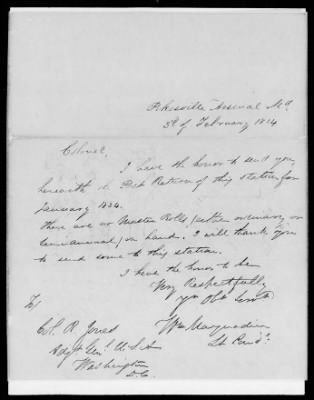 Pikesville Arsenal Md.
3d of February 1834
Colonel,
I have the honor to send you
herewith the Post Return of this station for
January 1834.
There are no Muster Rolls (either ordinary or
on hand. I will thank you
to send some to this station.
I have the honor to be
Very Respectfully
Yr Obt Servt
To
Col. R. Jones
Adjt Genl. U.S.A
Washington
D.C.
Wm
Lt